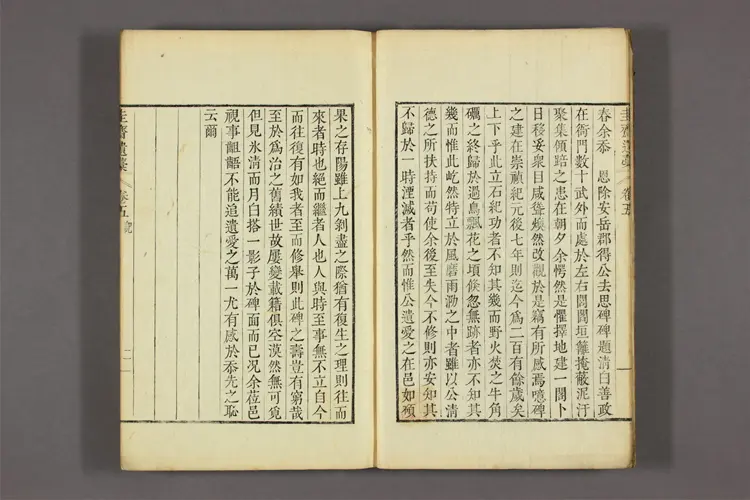 圭齋遺藁 卷五
春余忝 恩除安岳郡得公去思碑碑題清白善政
在衙門數十武外而處於左右閭閻垣籬掩蔽泥汙
聚集傾踣之患在朝夕余愕然是懼擇地建一閣卜
日移妥衆目咸聳煥然改觀於是竊有所感焉噫碑
之建在崇禎紀元後七年則迄今爲二百有餘歲矣
上下乎此立石紀功者不知其幾而野火焚之牛角
礪之終歸於過鳥飄花之頃倏忽無跡者亦不知其
幾而惟此屹然特立於風磨雨泐之中者雖以公淸
德之所扶持而苟使余後至失今不修則亦安知其
不歸於一時湮滅者乎然而惟公遺愛之在邑如碩
果之存陽雖上九剝盡之際猶有復生之理則往而
來者時也絕而繼者人也人與時至事無不立自今
而往復有如我者至而修舉則此碑之壽豈有窮哉
至於爲治之舊績世故屢變載籍俱空漠然無可覓
但見氷淸而月白搭一影子於碑面而已況余莅邑
視事齟齬不能追遺愛之萬一尤有感於忝先之恥
云爾
圭齋遺藁 卷五